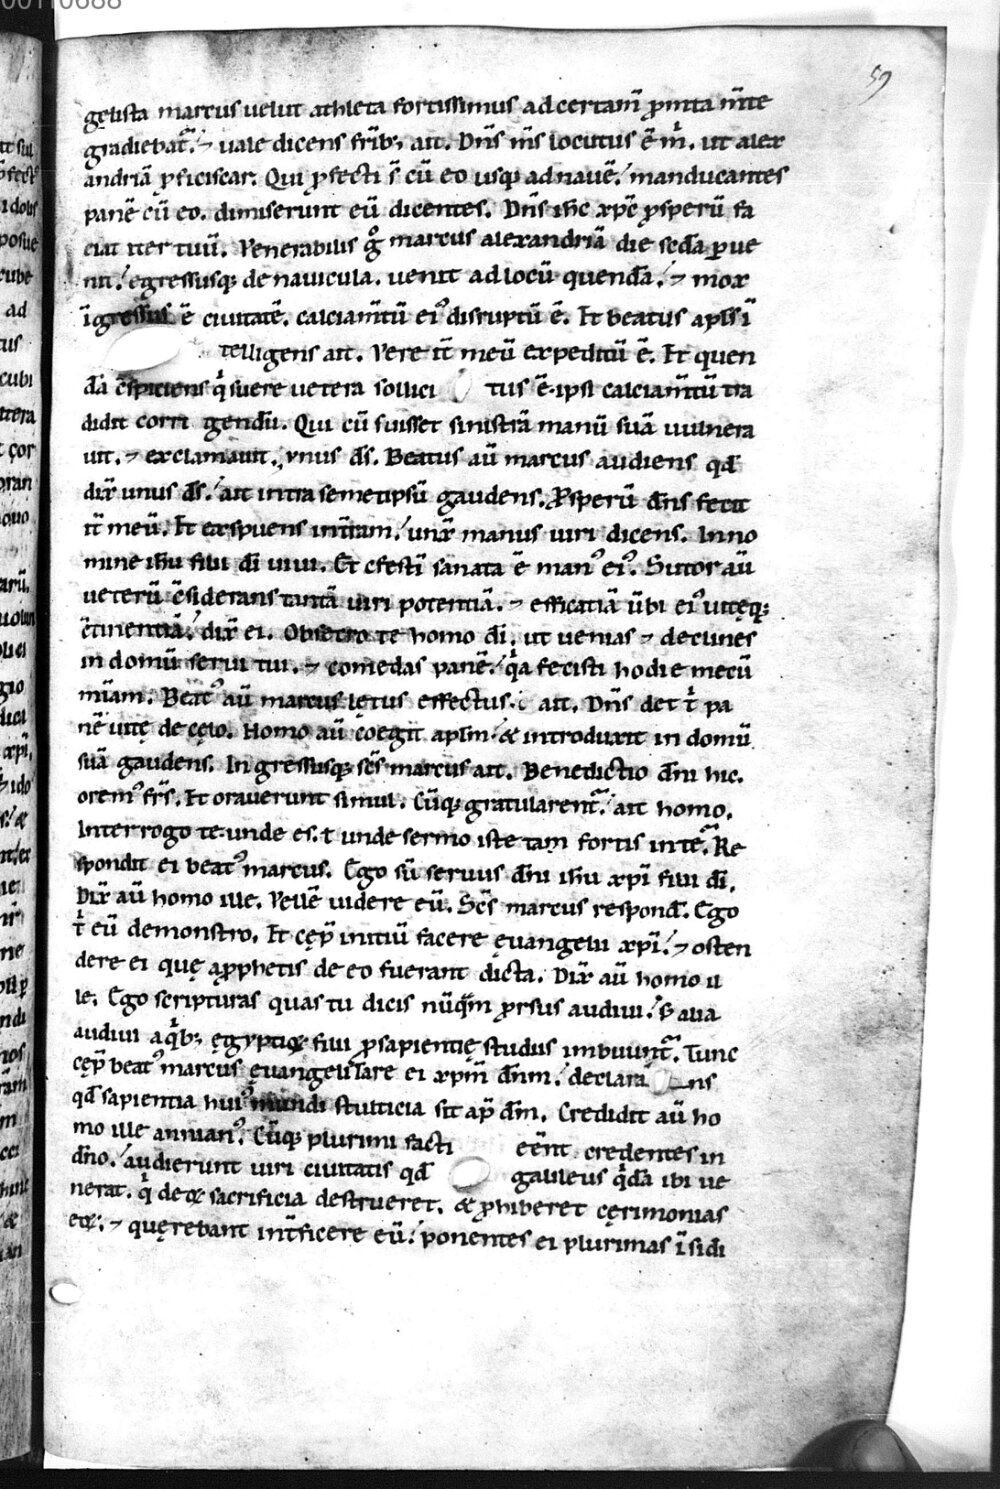 00110688
59
gęlista marcus uelut athleta fortissimus ad certam̄ ꝓmta m̄te
gradiebat᷑. ⁊ uale dicens fr̄ib; ait. Dn̄s m̄s locutus ē m̊. ut alex
andriā ꝓficiscar. Qui ꝓfecti s̄ cū eo usq; ad nauē. manducantes
panē cū eo. dimiserunt eū dicentes. Dn̄s ih̄c xp̄c ꝓsperū fa
ciat iter tuū. Venerabilis g̊ marcus alexandriā die scd̄a ꝑue
nit. egressusq; de nauicula. uenit ad locū quendā. ⁊ mox
īgressus ē ciuitatē. calciam̄tū ei᾿ disruptū ē. Et beatus apl̄s ī
telligens ait. Vere it̄ meū expeditū ē. Et quen
dā c̄spiciens q̊ suere uetera sollici tus ē. ipsi calciam̄tū tra
didit corri gendū. Qui cū suisset sinistrā manū suā uulnera
uit. ⁊ exclamauit. vnus d̄s. Beatus aū marcus audiens qd̄
dix̄ unus d̄s. ait intra semetipsū gaudens. Ꝓsperū dn̄s fecit
it̄ meū. Et exspuens in t̄ram. unx̄ manus uiri dicens. In no
mine ih̄u filii dī uiui. Et c̄festī sanata ē man᾿ ei᾿. Sutor aū
ueterū c̄siderans tantā uiri potentiā. ⁊ efficatiā ūbi ei᾿ uitęq;
c̄tinentiā. dix̄ ei. Obsecro te homo dī. ut uenias ⁊ declines
in domū serui tui. ⁊ comedas panē. q̊a fecisti hodie mecū
mīam. Beat᾿ aū marcus lętus effectus. ait. Dn̄s det t̊ pa
nē uitę de cęlo. Homo aū coegit apl̄m. & introduxit in domū
suā gaudens. Ingressusq; sc̄s marcus ait. Benedictio dn̄i hic.
orem᾿ fr̄s. Et orauerunt simul. Cūq; gratularent᷑. ait homo.
Interrogo te. unde es. ł unde sermo iste tam fortis in te. Re
spondit ei beat᾿ marcus. Ego sū seruus dn̄i ih̄u xp̄i filii dī.
Dix̄ aū homo ille. Vellē uidere eū. Sc̄s marcus respond̄. Ego
t̊ eū demonstro. Et cęp̄ initiū facere ęuangelii xp̄i. ⁊ osten
dere ei quę aꝓphetis de eo fuerant dicta. Dix̄ aū homo il
le. Ego scripturas quas tu dicis nūq̄m ꝓrsus audiui. s; alia
audiui a q̊b; ęgyptioꝝ filii ꝓ sapientię studiis imbuunt᷑. Tunc
cęp̄ beat᾿ marcus ęuangelizare ei xp̄m dn̄m. declara ns
qd̄ sapientia hui᾿ mundi stulticia sit ap̄ dm̄. Credidit aū ho
mo ille annian᾿. Cūq; plurimi facti eēnt credentes in
dn̄o. audierunt uiri ciuitatis qd̄ galileus q̊dā ibi ue
nerat. q̊ deoꝝ sacrificia destrueret. & ꝓhiberet cęrimonias
eoꝝ. ⁊ quęrebant int̄ficere eū. ponentes ei plurimas īsidi